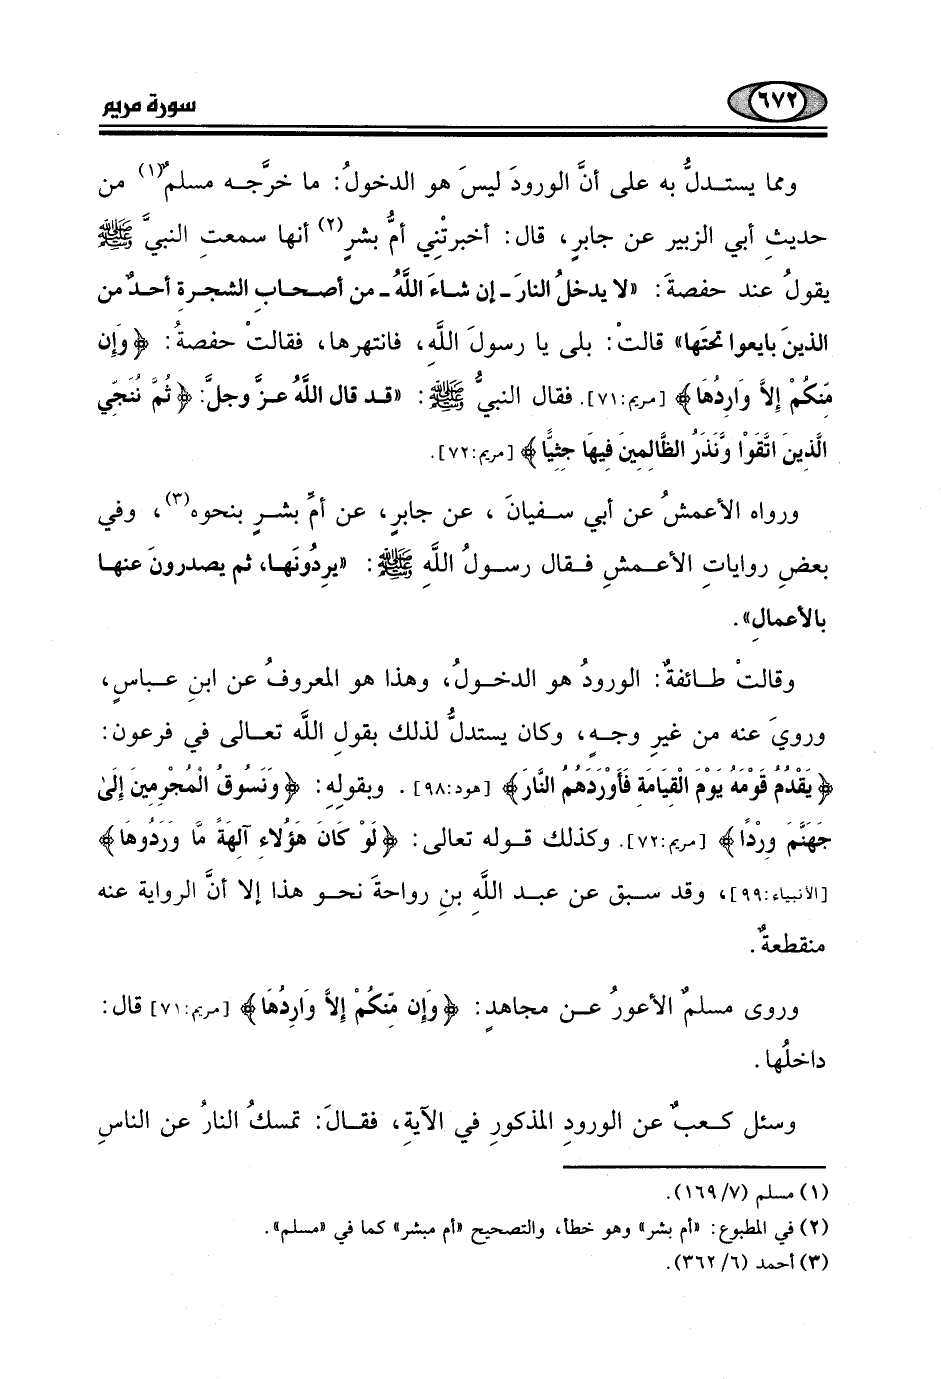 ٦٧٢
سورة مريم
ومما يستـدلُّ به على أنَّ الورودَ ليسَ هو الدخولُ: ما خرَّجـه مسلمٌ(١) من
حديثِ أبي الزبير عن جابرٍ، قال: أخبرتْني أمُّ بشرٍ(٢) أنها سمعت النبيَّ ﷺ
يقولُ عند حفصةَ: «لا يدخلُ النارَ ـ إن شاءَ اللَّهُ ـ من أصحابِ الشجرة أحدٌ من
الذينَ بايعوا تحتَها» قالتْ: بلى يا رسولَ اللَّهِ، فانتهرها، فقالتْ حفصةُ: ﴿ وَإِن
مِّنكُمْ إِلاَّ وَارِدُهَا﴾ [مريم:٧١]. فقال النبيُّ ﷺ: «قـد قال اللَّهُ عـزَّ وجلَّ: ﴿ ثُمَّ نُنَجِّي
الَّذِينَ اتَّقَوْا وَّنَذَرُ الظَّالِمِينَ فِيهَا جِثِيًّا ﴾ [مريم:٧٢].
ورواه الأعمشُ عن أبي سـفيانَ ، عن جابرٍ، عن أمِّ بشـرٍ بنحوه(٣)، وفي
بعضِ رواياتِ الأعـمشِ فـقال رسـولُ اللَّهِ ﷺ: «يردُونَهـا، ثم يصدرونَ عنهـا
بالأعمالِ».
وقالتْ طـائفةٌ: الورودُ هو الدخـولُ، وهذا هو المعروفُ عن ابنِ عبـاسٍ،
ورويَ عنه من غيرِ وجـهٍ، وكان يستدلُّ لذلك بقولِ اللَّه تعـالى في فرعون:
﴿ يَقْدُمُ قَوْمَهُ يَوْمَ الْقِيَامَةِ فَأَوْرَدَهُمُ النَّارَ﴾ [هود:٩٨] . وبقولِهِ: ﴿ وَنَسُوقُ الْمُجْرِمِينَ إِلَىٰ
جَهَنَّمَ وِرْدًا﴾ [مريم:٧٢]. وكذلك قـوله تعالى: ﴿لَوْ كَانَ هَؤُلاءِ آلِهَةً مَّا وَرَدُوهَا﴾
[الأنبياء:٩٩]، وقد سـبق عن عبـد اللَّهِ بنِ رواحةَ نحـو هذا إلا أنَّ الرواية عنه
منقطعةٌ.
وروى مسلمٌ الأعورُ عـن مجاهدٍ: ﴿ وَإِن مِّنكُمْ إِلاَّ وَارِدُهَا﴾ [مريم:٧١] قال:
داخلُها .
وسئل كـعبٌ عن الورودِ المذكورِ في الآيةِ، فقـالَ: تمسكُ النارُ عن الناسِ
(١) مسلم (٧/ ١٦٩).
(٢) في المطبوع: «أم بشر» وهو خطأ، والتصحيح «أم مبشر» كما في «مسلم».
(٣) أحمد (٦/ ٣٦٢).